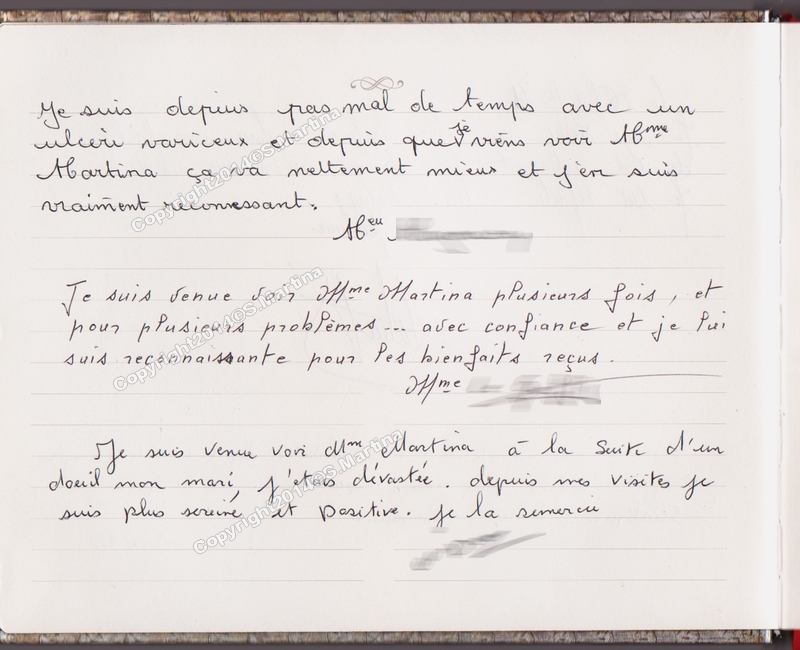 Je suis depuis pas mal de temps avec un
ulcère variceux et depuis que je viens voir Mme
Martina ça va nettement mieux et j'en suis
vraiment reconessant.
Je suis venue voir Mme Martina plusieurs fois, et
pour plusieurs problèmes... avec confiance et je lui
suis reconnaissante pour les bienfaits reçus.
Mme
Je suis venue voir Mme Martina à la suite d'un
doeil mon mari, j'étais dévastée. depuis mes visites je
suis plus sereine et positive. je la remercie
Copyright2014©S.Martina
Copyright2014©S.Martina
Copyright2014©S.Martina